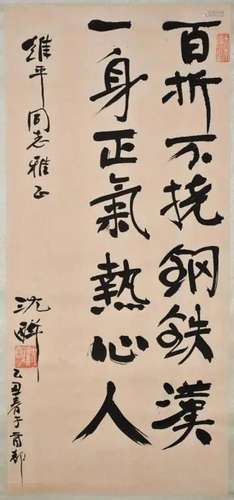 百折不撓鋼鉄漢
一身正氣熱心人
維平同志雅正
沈醉
乙丑春于首都